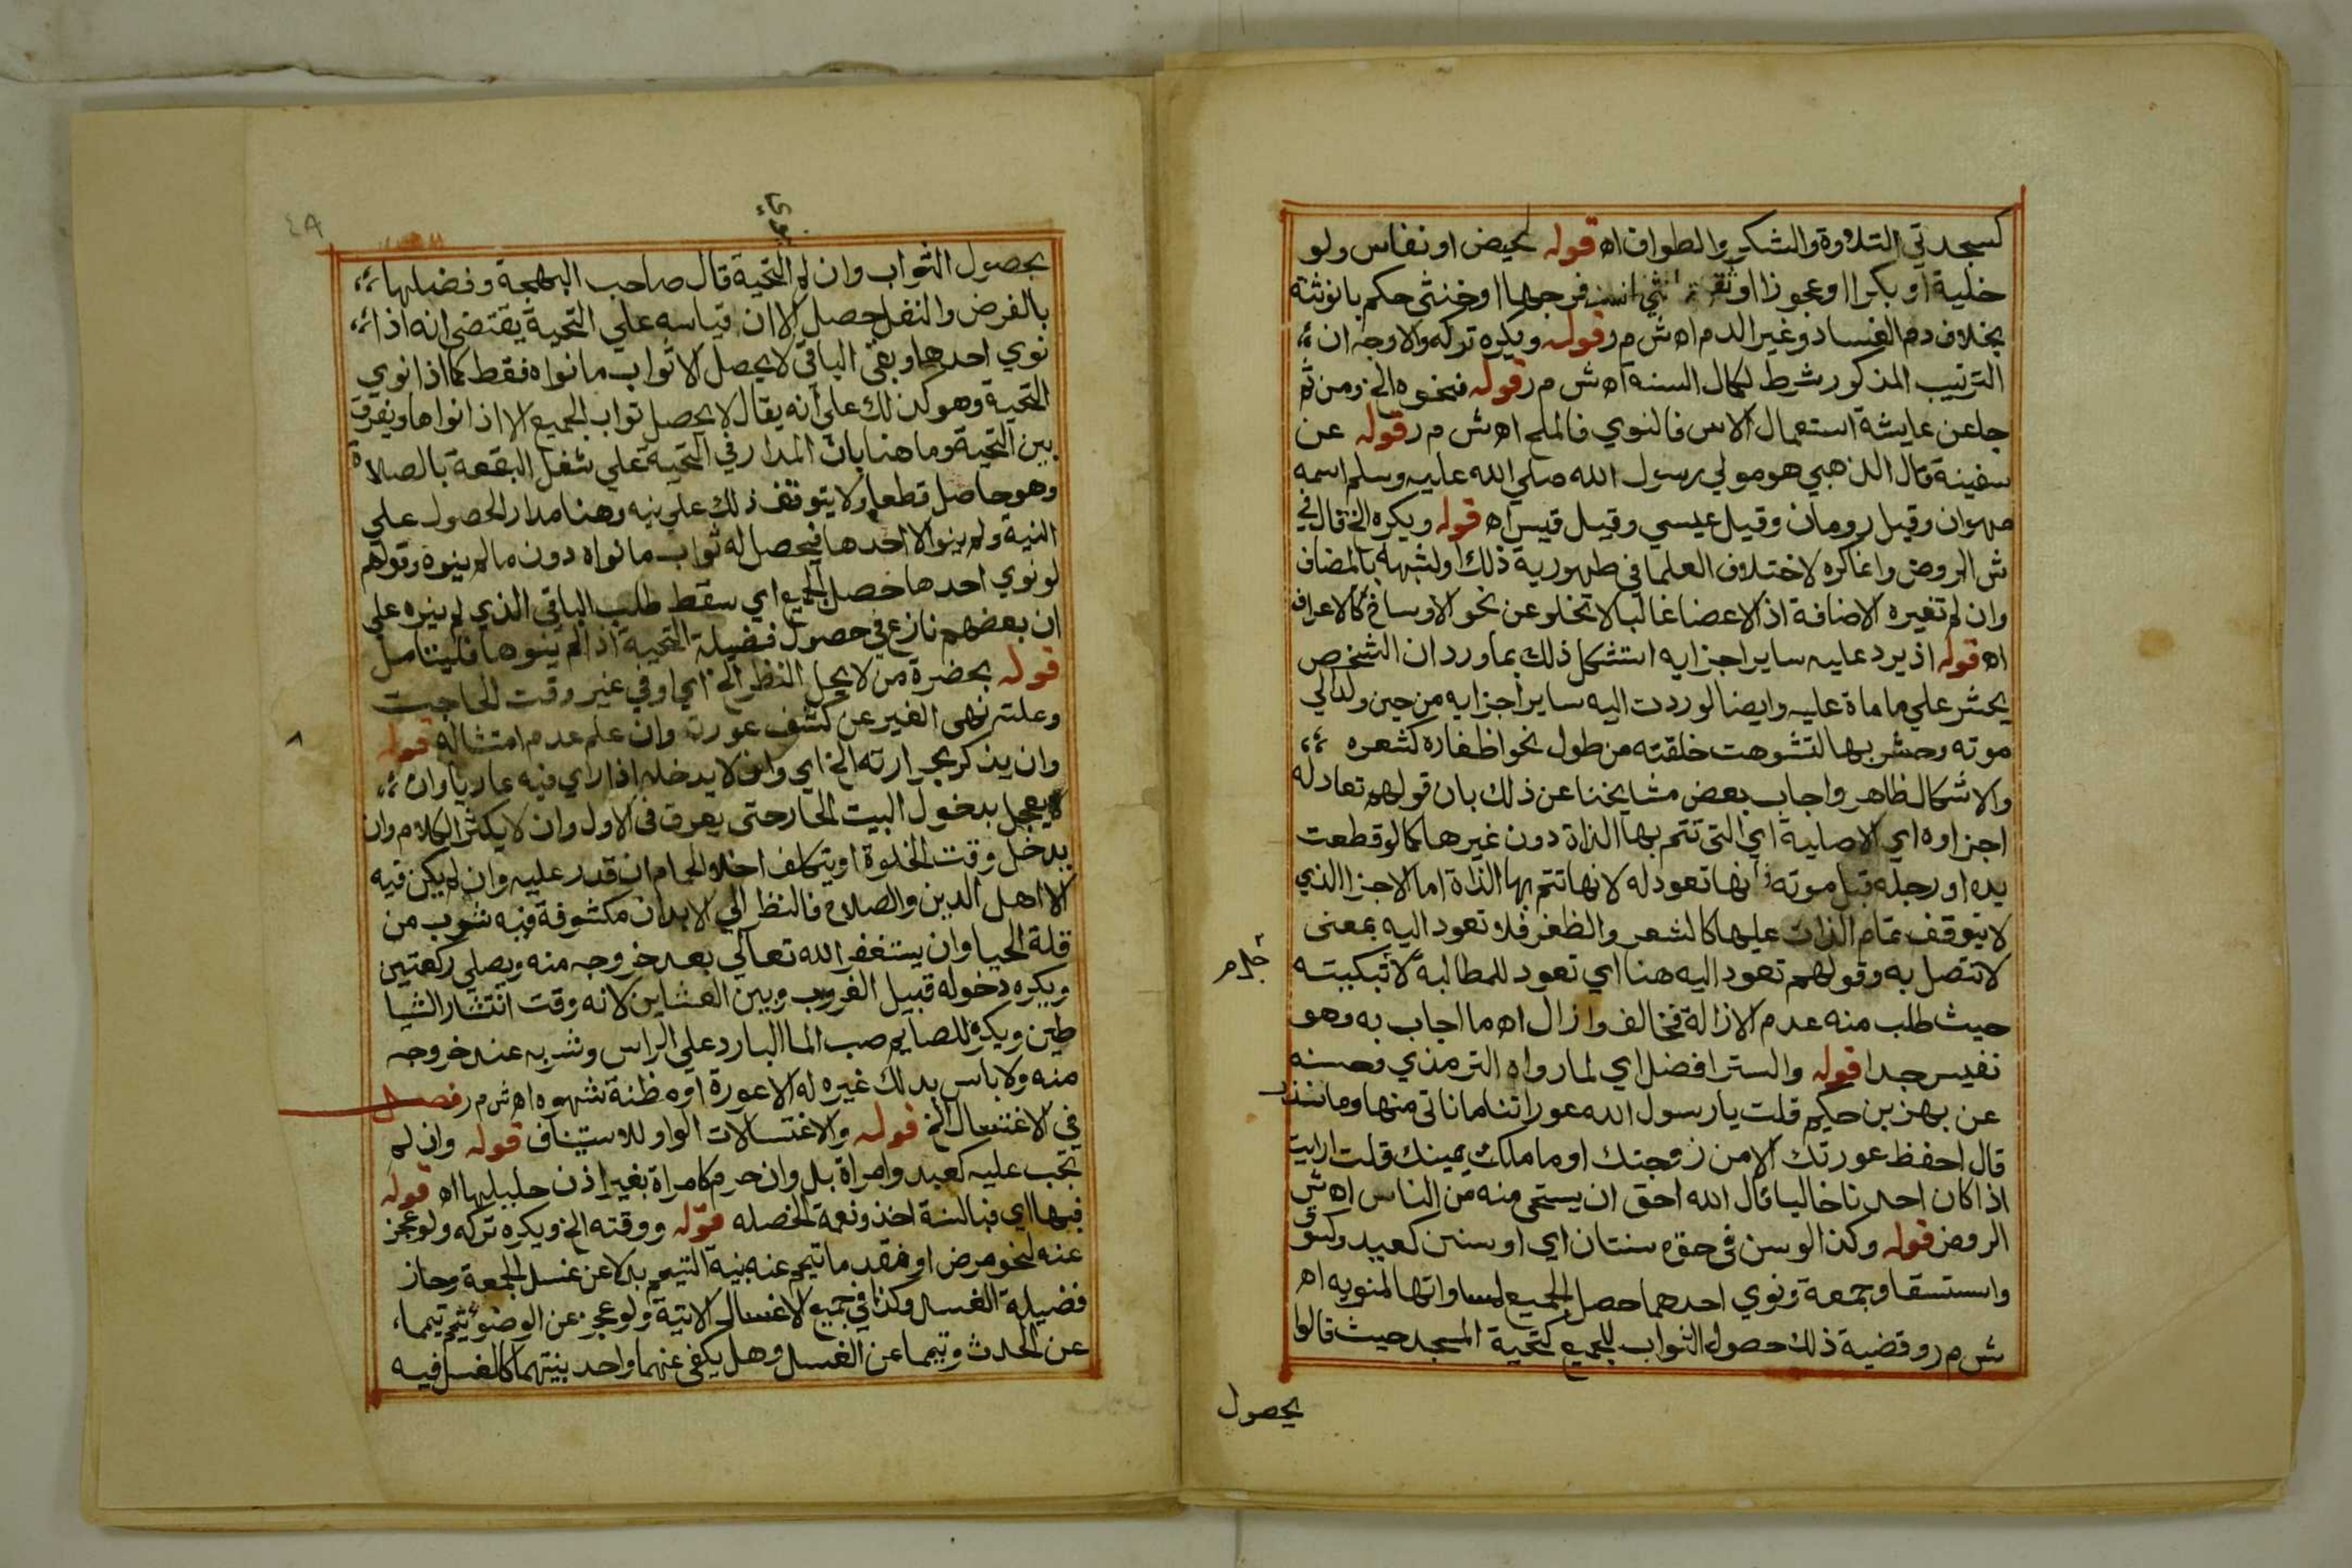 كسجدتي التلاوة والشكر والطواف اه قوله لحيض او نفاس ولو
خلية او بكرا او عجوزا او ثقبة انثي انسد فرجها او خنثي حكم بانوثثه
بخلاف دم الفساد وغير الدم اه ش م ر قوله ويكره تركه والاوجه ان
الترتيب المذكور شرط لكمال السنه اه ش م ر قوله فنحوه الخ ومن ثم
جا عن عايشة استعمال الاس فالنوي فالملح اه ش م ر قوله عن
سفينة قال الذهبي هو مولي رسول الله صلي الله عليه وسلم اسمه
مهران وقيل رومان وقيل عيسي وقيل قيس اه قوله ويكره الخ قال في
ش الروض وانما كره لاختلاف العلما في طهورية ذلك او لشبهه بالمضاف
وان لم تغيره الاضافة اذ الاعضا غالبا لا تخلو عن نحو الاوساخ كالاعراف
اه قوله اذ يرد عليه ساير اجزايه استشكل ذلك بما ورد ان الشخص
يحشر علي ما ماة عليه وايضا لو ردت اليه ساير اجزايه من حين ولد الي
موته وحشر بها لتشوهت خلقته من طول نحو اظفاره كشعره
والاشكال ظاهر واجاب بعض مشايخنا عن ذلك بان قولهم تعاد له
اجزاوه اي الاصلية اي التي تتم بها الذاة دون غيرها كما لو قطعت
يده او رجله قبل موته فانها تعود له لانها تتم بها الذاة اما الاجزا الذي
لا يتوقف تمام الذات عليها كالشعر والظفر فلا تعود اليه بمعنى
لا تتصل به وقولهم تعود اليه هنا اي تعود للمطالبة لا تبكيته
حيث طلب منه عدم الازالة فخالف وازال اه ما اجاب به وهو
نفيس جدا قوله والستر افضل اي لما رواه الترمذي وحسنه
عن بهز بن حكيم قلت يا رسول الله عوراتنا ما ناتي منها وما نذر
قال احفظ عورتك الا من زوجتك او ما ملكت يمينك قلت ارايت
اذا كان احدنا خاليا قال الله احق ان يستحى منه من الناس اه ش
الروض قوله وكذا لو سن في حقه سنتان اي او سنن كعيد وكسوف
واستسقا وجمعة ونوي احدهما حصل الجميع لمساواتها لمنويه اه
ش م ر وقضية ذلك حصول الثواب للجميع كتحية المسجد حيث قالوا
يحصول
٤٨
بحصول الثواب وان لم التحية قال صاحب البهجة وفضلها
بالفرض والنفل حصل الا ان قياسه علي التحية يقتضي انه اذا
نوي احدها وبقي الباقي لا يحصل الا ثواب ما نواه فقط كما اذا نوي
التحية وهو كذلك علي انه يقال لا يحصل ثواب الجميع الا اذا نواها ويفرق
بين التحية وما هنا بان المدار في التحية علي شغل البقعة بالصلاة
وهو حاصل قطعا ولا يتوقف ذلك علي نيه وهنا مدار الحصول علي
النية ولم ينو الا احدها فيحصل له ثواب ما نواه دون ما لم ينوه وقولهم
لو نوي احدها حصل الجميع اي سقط طلب الباقي الذي لم ينوه علي
ان بعضهم نازع في حصول فضيلة التحية اذا لم ينوها فليتامل
قوله بحضرة من لا يحل النظر الخ اي او في غير وقت الحاجت
وعلته نهى الغير عن كشف عورته وان علم عدم امتثاله قوله
وان يذكر بحرارته الخ اي وان لا يدخله اذا راي فيه عاريا وان
لا يعجل بدخول البيت الحار حتى يعرق في الاول وان لا يكثر الكلام وان
يدخل وقت الخلوة او يتكلف اخلا الحمام ان قدر عليه وان لم يكن فيه
الا اهل الدين والصلاح فالنظر الي الابدان مكشوفة فيه شوب من
قلة الحيا وان يستغفر الله تعالي بعد خروجه منه ويصلي ركعتين
ويكره دخوله قبيل الغروب وبين العشاين لانه وقت انتشار الشيا
طين ويكره للصايم صب الما البارد علي الراس وشربه عند خروجه
منه ولا باس بدلك غيره له الا عورة او مظنة شهوه اه ش م ر فصل
في الاغتسال الخ قوله والاغتسالات الواو للاستيناف قوله وان لم
تجب عليه كعبد وامراة بل وان حرم كامراة بغير اذن حليلها اه قوله
فبها اي فبالسنة اخذ ونعمة الخصله قوله ووقته الخ ويكره تركه ولو عجز
عنه لنحو مرض او فقد ما تيمم عنه بنية التيمم بدلا عن غسل الجمعة وحاز
فضيلة الغسل وكذا في جميع الاغسال الاتية ولو عجز عن الوضو تيمم تيمما
عن الحدث وتيمما عن الغسل وهل يكفي عنهما واحد بنيتهما كالغسل فيه